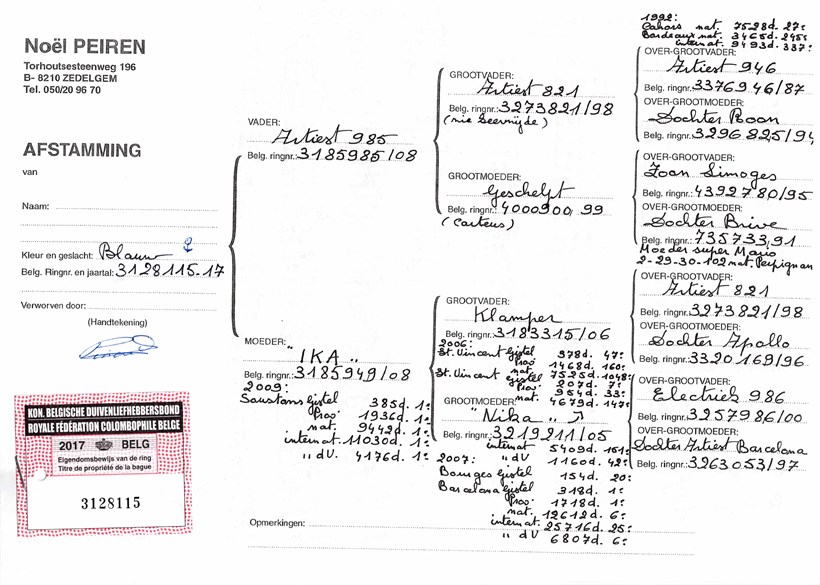 Noël PEIREN
Torhoutsesteenweg 196
B- 8210 ZEDELGEM
Tel. 050/20 96 70
AFSTAMMING
van
Naam:
Kleur en geslacht: Blauw ♀
Belg. Ringnr. en jaartal: 3128115-17
Verworven door:
(Handtekening)
KON. BELGISCHE DUIVENLIEFHEBBERSBOND
ROYALE FÉDÉRATION COLOMBOPHILE BELGE
2017 BELG
Eigendomsbewijs van de ring
Titre de propriété de la bague
3128115
VADER:
Artiest 985
Belg. ringnr.: 3185985/08
MOEDER:
"IKA"
Belg. ringnr.: 3185949/08
2009:
Soustons gistel 385d. 1e
Prov 1936d. 1e
nat. 9442d. 1e
internat. 11030d. 1e
" dV 4176d. 1e
Opmerkingen:
GROOTVADER:
Artiest 821
Belg. ringnr.: 3273821/98
GROOTMOEDER:
Geschelpt
Belg. ringnr.: 4000900, 99
GROOTVADER:
Klamper
Belg. ringnr.: 3183315/06
2006:
St. Vincent gistel 978d. 47e
Prov 1468d. 160e
nat 7525d. 1048e
St. Vincent gistel 207d. 7e
Prov 954d. 33e
nat. 4679d. 147e
GROOTMOEDER:
"Nika"
Belg. ringnr.: 3219211/05
internat 5409d. 151e
" dV 1160d. 42e
2007:
Bourges gistel 154d. 20e
Barcelona gistel 318d. 1e
Prov 1718d. 1e
nat. 12612d. 6e
internat. 25716d. 25e
" dV 6807d. 6e
1992:
Cahors nat. 7528d. 27e
Bordeaux nat. 3465d. 245e
internat. 9493d. 337e
OVER-GROOTVADER:
Artiest 946
Belg. ringnr.: 3376946/87
OVER-GROOTMOEDER:
Dochter Boon
Belg. ringnr.: 3296825/94
OVER-GROOTVADER:
Zoon Limoges
Belg. ringnr.: 4392780/95
OVER-GROOTMOEDER:
Dochter Brive
Belg. ringnr.: 735733,91
Moeder super Mario
2-29-30-102 nat. Perpignan
OVER-GROOTVADER:
Artiest 821
Belg. ringnr.: 3273821/98
OVER-GROOTMOEDER:
Dochter Apollo
Belg. ringnr.: 3320169/96
OVER-GROOTVADER:
Electriek 986
Belg. ringnr.: 3257986/00
OVER-GROOTMOEDER:
Dochter Artiest Barcelona
Belg. ringnr.: 3263053/97